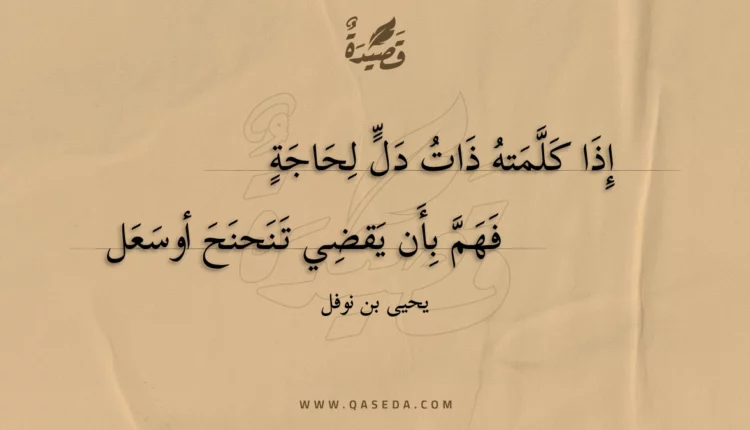 قَصِيْدَةٌ
إِذَا كَلَّمَتهُ ذَاتُ دَلٍّ لِحَاجَةٍ
فَهَمَّ بِأَن يَقضِي تَنَحنَحَ أوسَعَل
يحيى بن نوفل
WWW.QASEDA.COM